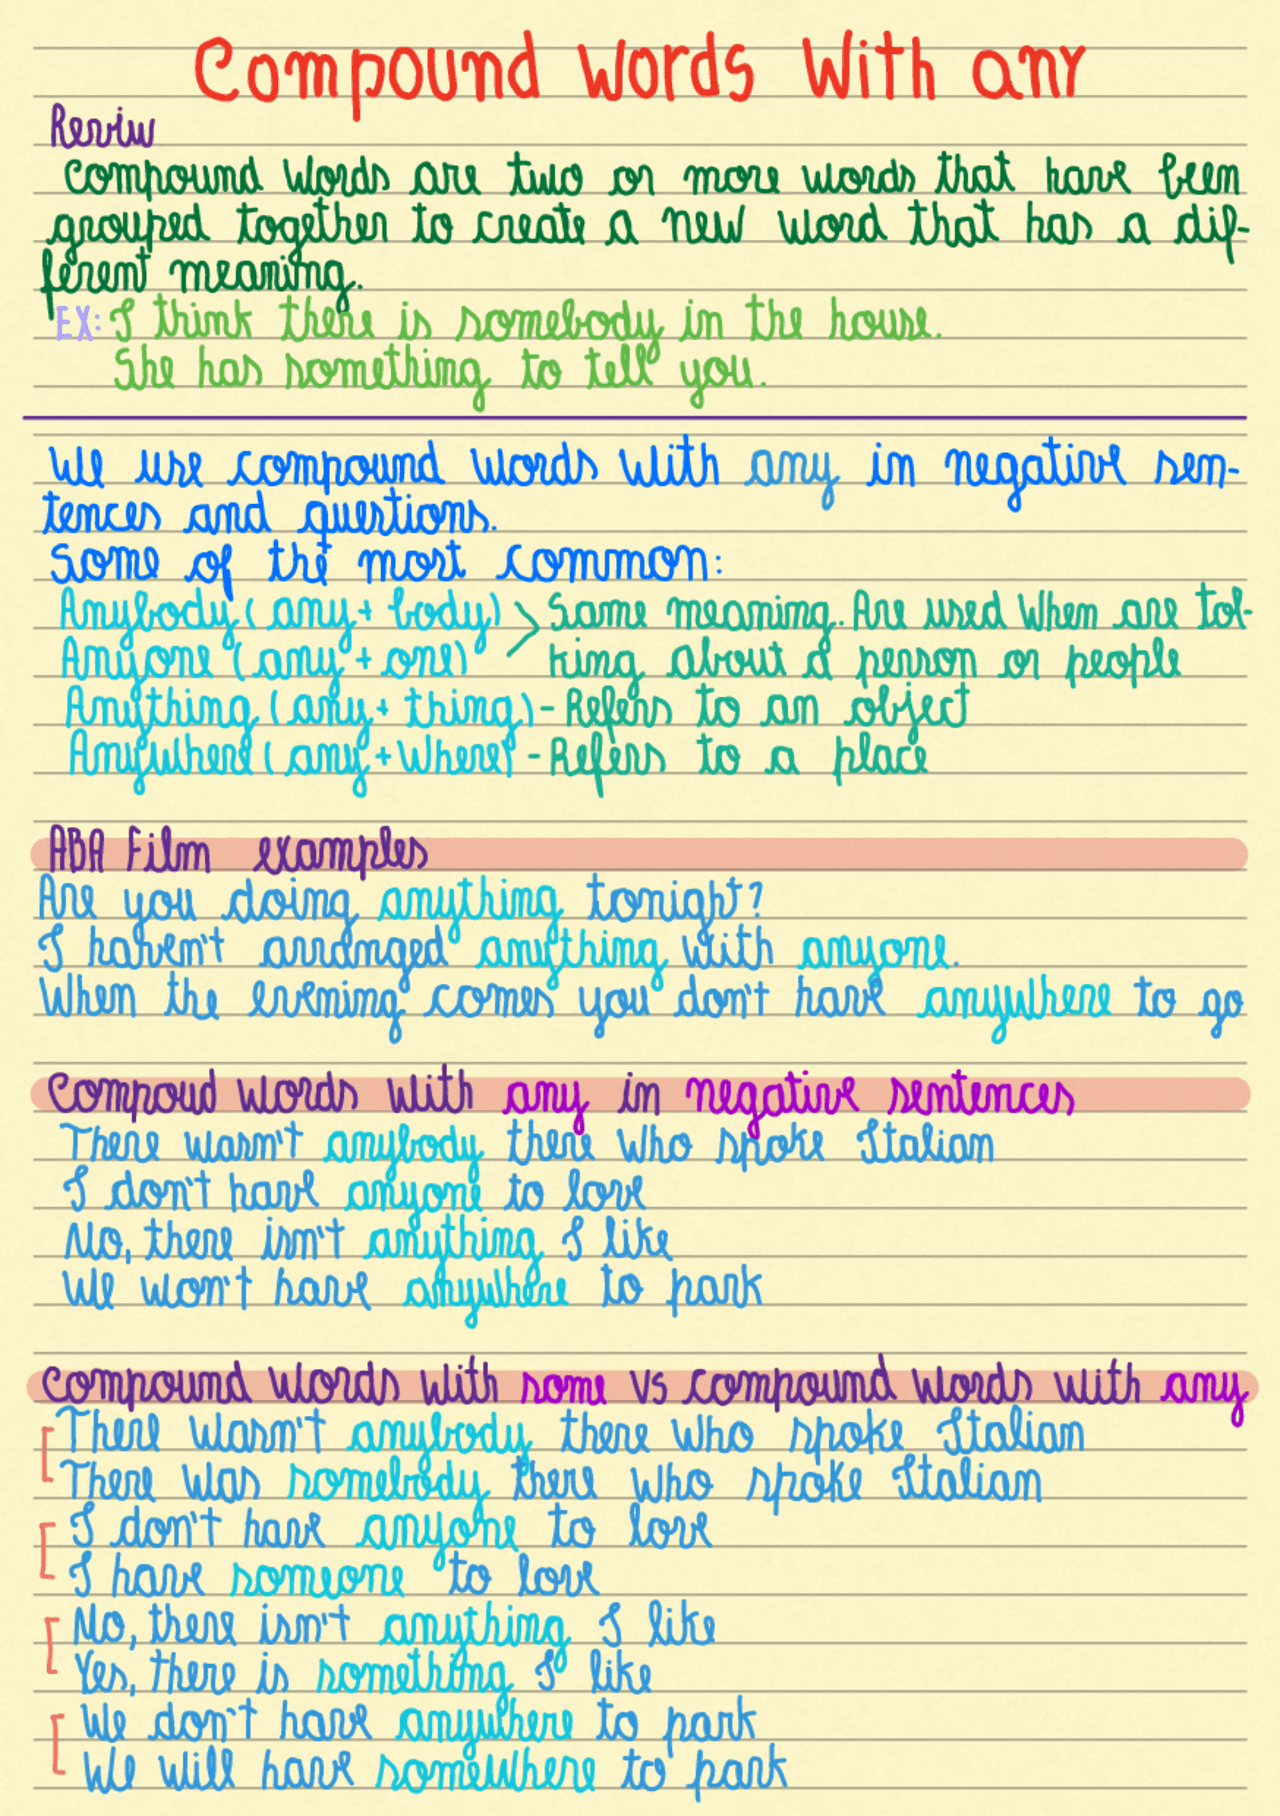 Compound Words With any
Reviw
Compound Words are two or more words that have been
grouped together to create a new word that has a dif-
ferent meaning.
EX: I think there is somebody in the house.
She has something to tell you.
We use compound words with any in negative sen-
tences and questions.
Some of the most common:
Anybody (any + body) > Same meaning. Are used When are tal-
Anyone (any + one) king about a person or people
Anything (any + thing) - Refers to an object
Anywhere (any + Where) - Refers to a place
ABA Film examples
Are you doing anything tonight?
I haven't arranged anything with anyone.
When the evening comes you don't have anywhere to go
Compoud words with any in negative sentences
There wasn't anybody there who spoke Italian
I don't have anyone to love
No, there isn't anything I like
We won't have anywhere to park
Compound words with some vs compound words with any
There wasn't anybody there who spoke Italian
There was somebody there who spoke Italian
I don't have anyone to love
I have someone to love
No, there isn't anything I like
Yes, there is something I like
We don't have anywhere to park
We will have somewhere to park